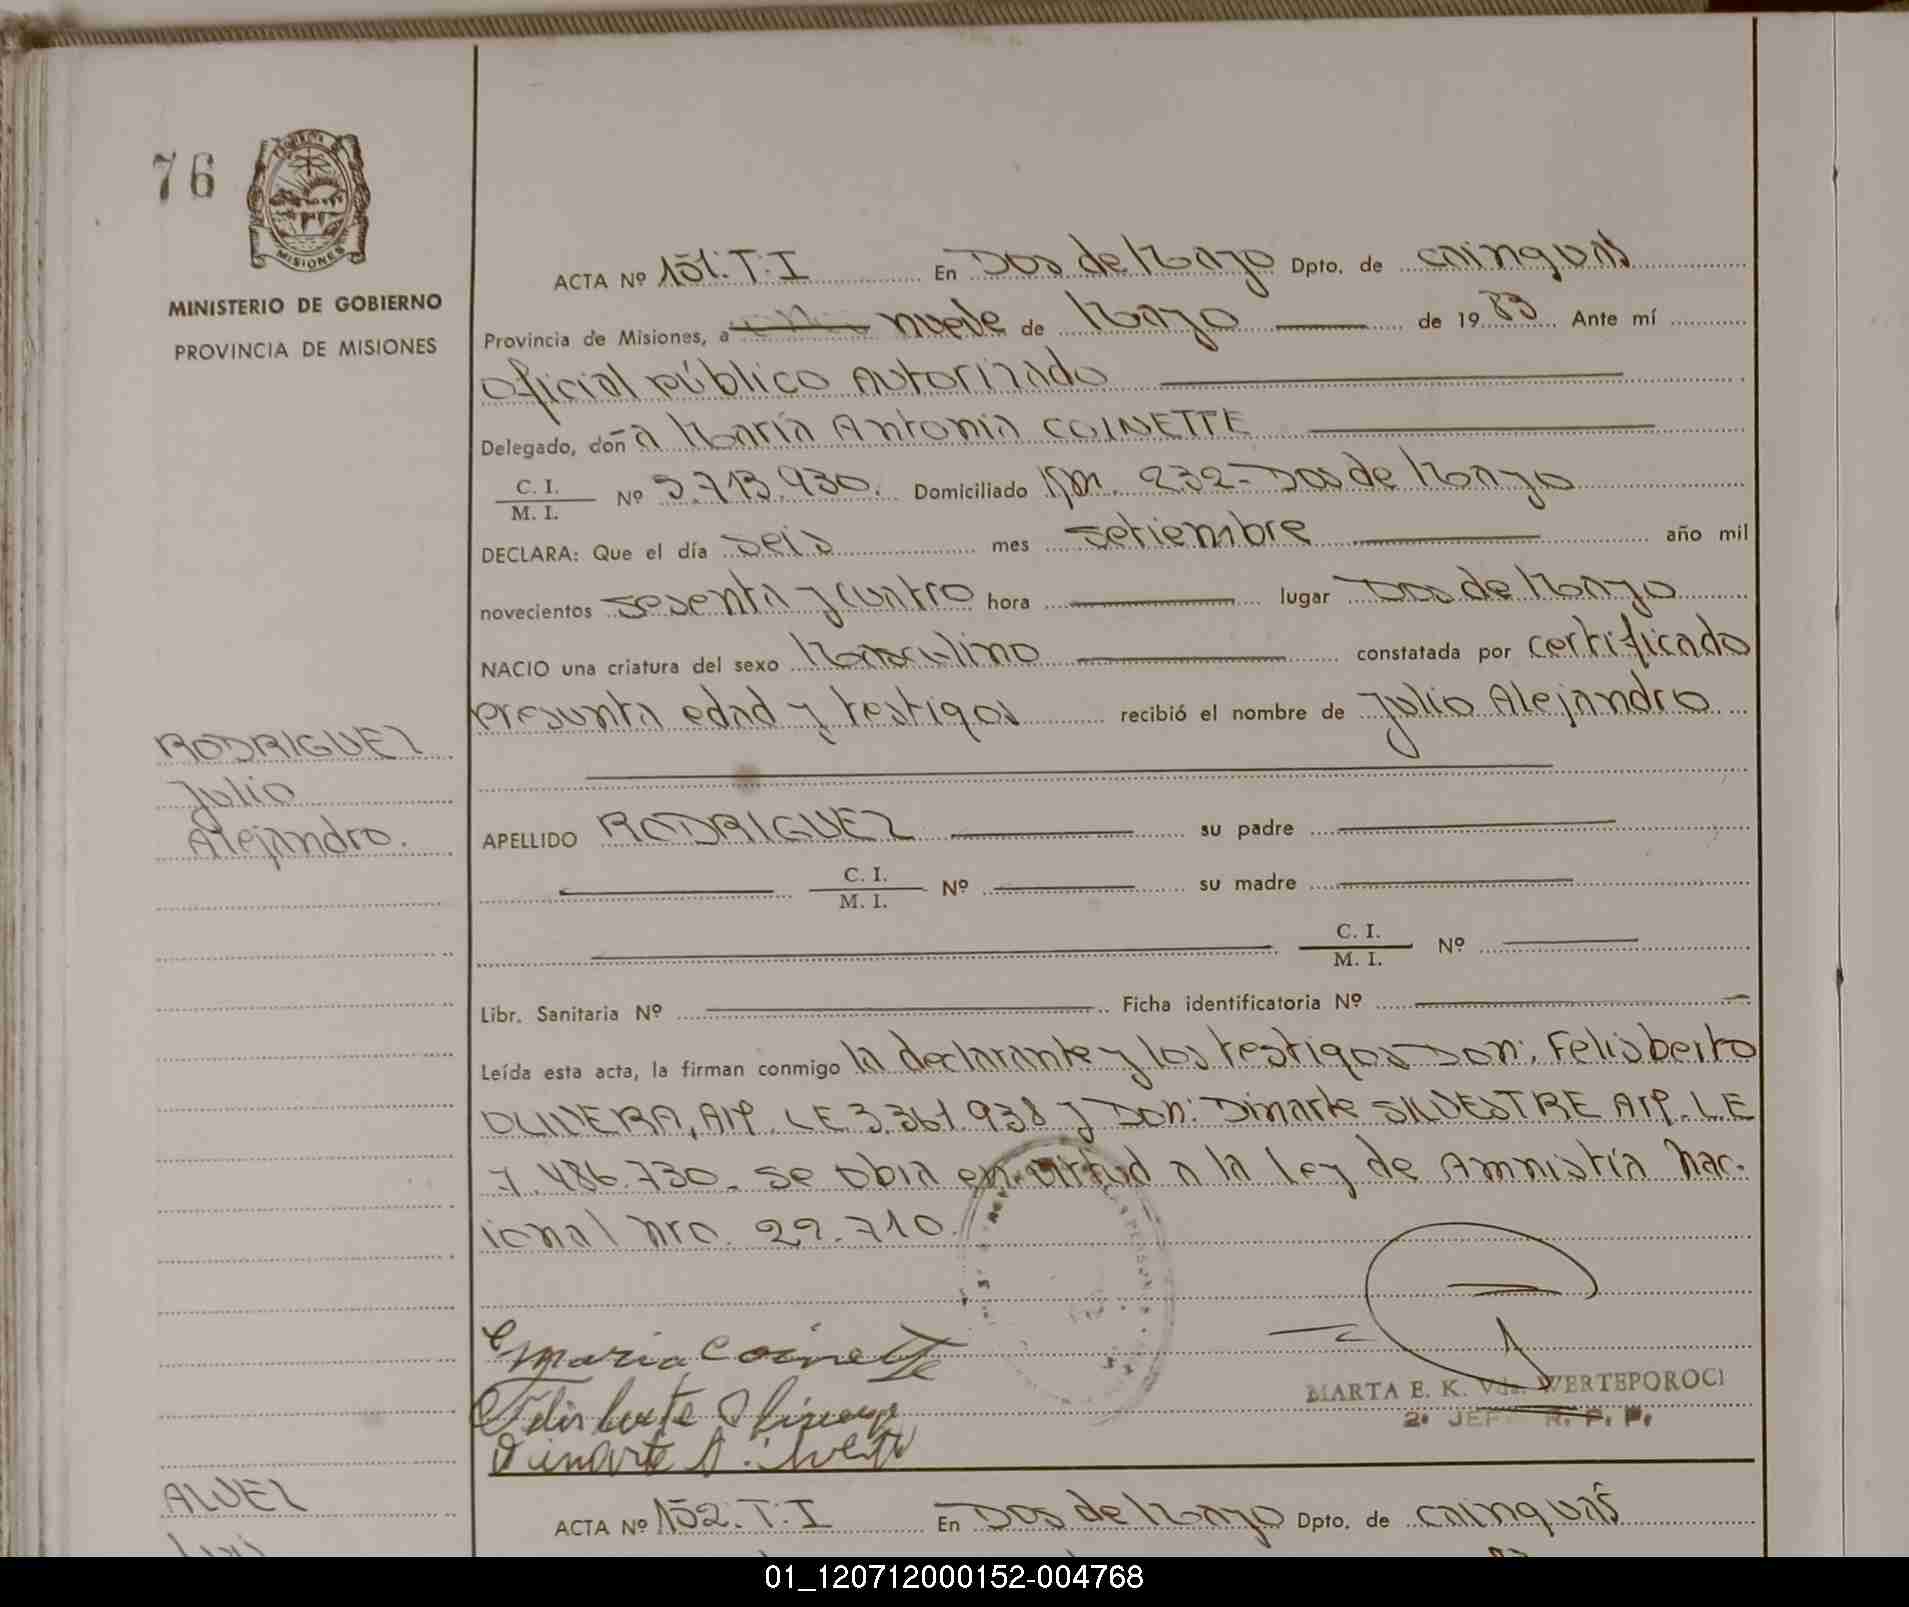 76
MISIONES
MINISTERIO DE GOBIERNO
PROVINCIA DE MISIONES
ACTA Nº 151. T. I En Dos de Mayo Dpto. de Cainguás
Provincia de Misiones, a nueve de Mayo de 1983 Ante mí
oficial público Autorizado
Delegado, doña María Antonia COINETTE
C. I. / M. I. Nº 5.713.930. Domiciliado Km. 232- Dos de Mayo
DECLARA: Que el día seis mes setiembre año mil
novecientos sesenta y cuatro hora lugar Dos de Mayo
NACIO una criatura del sexo Masculino constatada por certificado
presunta edad y testigos recibió el nombre de Julio Alejandro
RODRIGUEZ
Julio
Alejandro.
APELLIDO RODRIGUEZ su padre
C. I. / M. I. Nº su madre
C. I. / M. I. Nº
Libr. Sanitaria Nº Ficha identificatoria Nº
Leída esta acta, la firman conmigo la declarante y los testigos Don: Felisberto
OLIVERA, Arg. LE 3.361.938 y Don: Dinarte SILVESTRE Arg. LE
7.486.730. se obia en virtud a la Ley de Amnistía Nac-
ional nro. 22.710.
Maria Coinette
Felisberto Olivera
Dinarte Silvestre
MARTA E. K. Vda. WERTEPOROCI
2º JEFE R. P. P.
ALVEZ
ACTA Nº 152. T. I En Dos de Mayo Dpto. de Cainguás
01_120712000152-004768